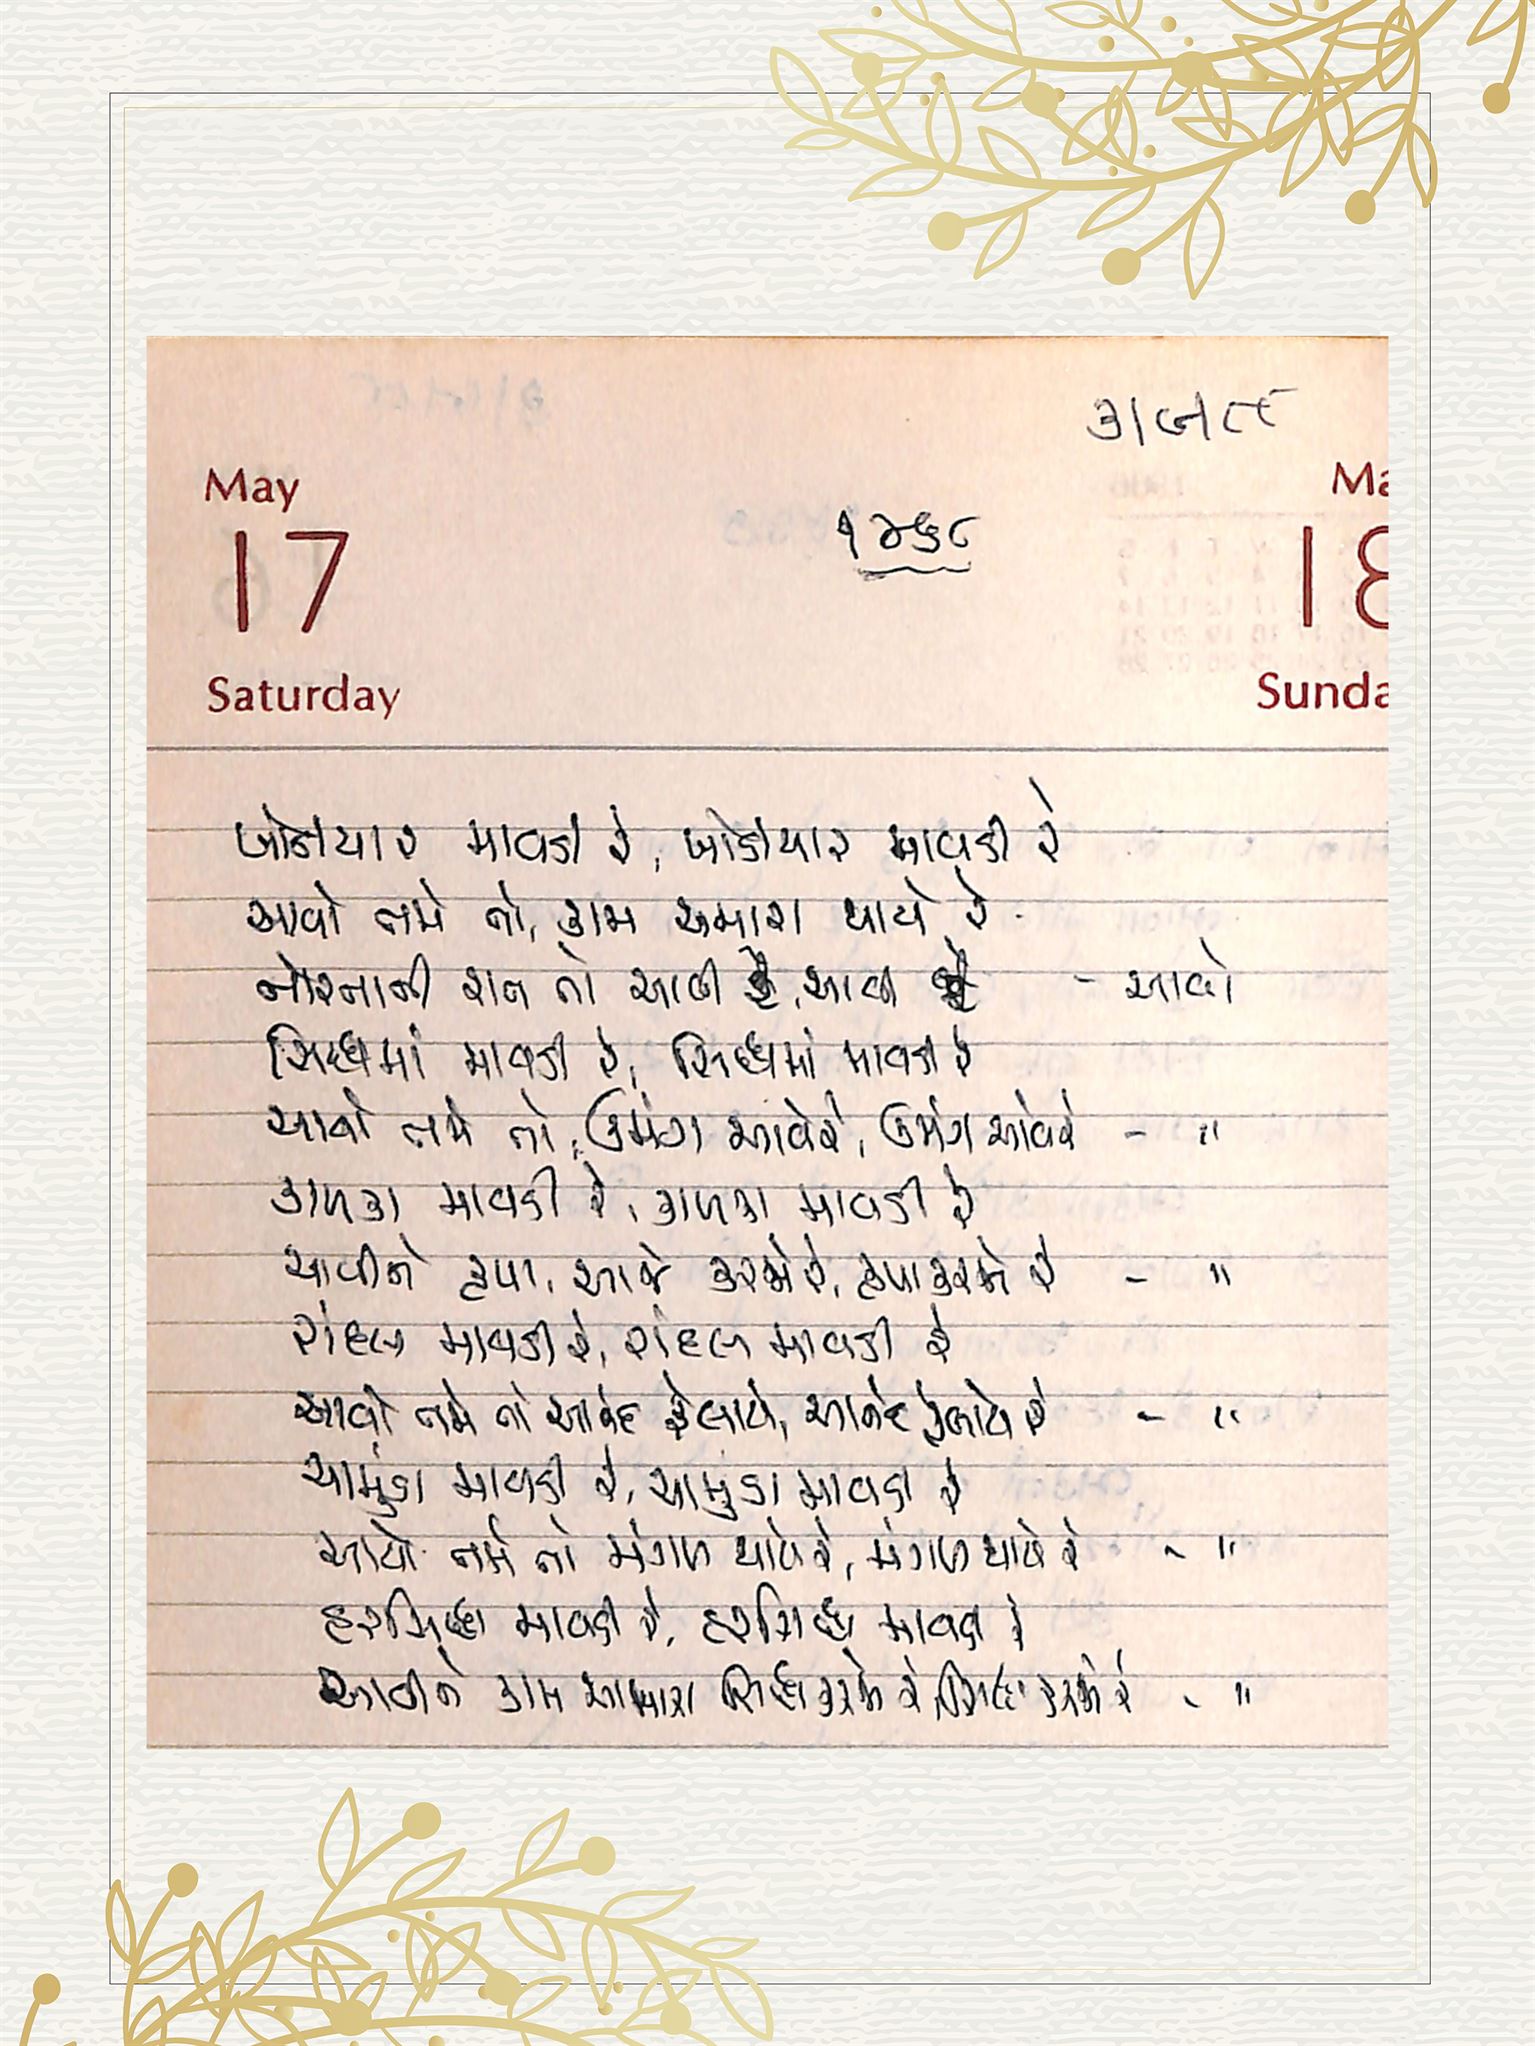 May
17
Saturday
Ma
18
Sunda
ખોડીયાર માવડી રે, ખોડીયાર માવડી રે
આવો તમે તો, કામ અમારા થાયે રે
નોરતાની રાત તો આવી છે, આવી છે - આવો
સિધ્ધમાં માવડી રે, સિધ્ધમાં માવડી રે
આવો તમે તો, ઉમંગ આવેરે, ઉમંગ આવેરે - "
કાળકા માવડી રે, કાળકા માવડી રે
આવીને કૃપા, આજે કરજો રે, કૃપા કરજો રે - "
રાંદલ માવડી રે, રાંદલ માવડી રે
આવો તમે તો આનંદ ફેલાયે, આનંદ ફેલાયે રે - "
ચામુંડા માવડી રે, ચામુંડા માવડી રે
આવો તમે તો મંગળ થાયે રે, મંગળ થાયે રે - "
હરસિધ્ધ માવડી રે, હરસિધ્ધ માવડી રે
આવીને કામ અમારા સિધ્ધ કરજો રે, સિધ્ધ કરજો રે - "